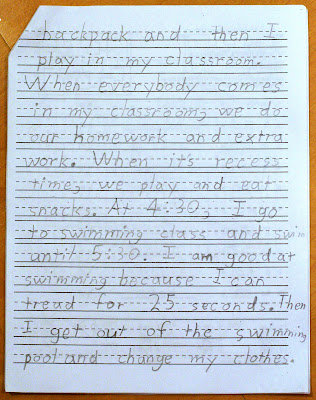 backpack and then I
play in my classroom.
When everybody comes
in my classroom, we do
our homework and extra
work. When it's recess
time, we play and eat
snacks. At 4:30, I go
to swimming class and swim
until 5:30. I am good at
swimming because I can
tread for 25 seconds. Then
I get out of the swimming
pool and change my clothes.